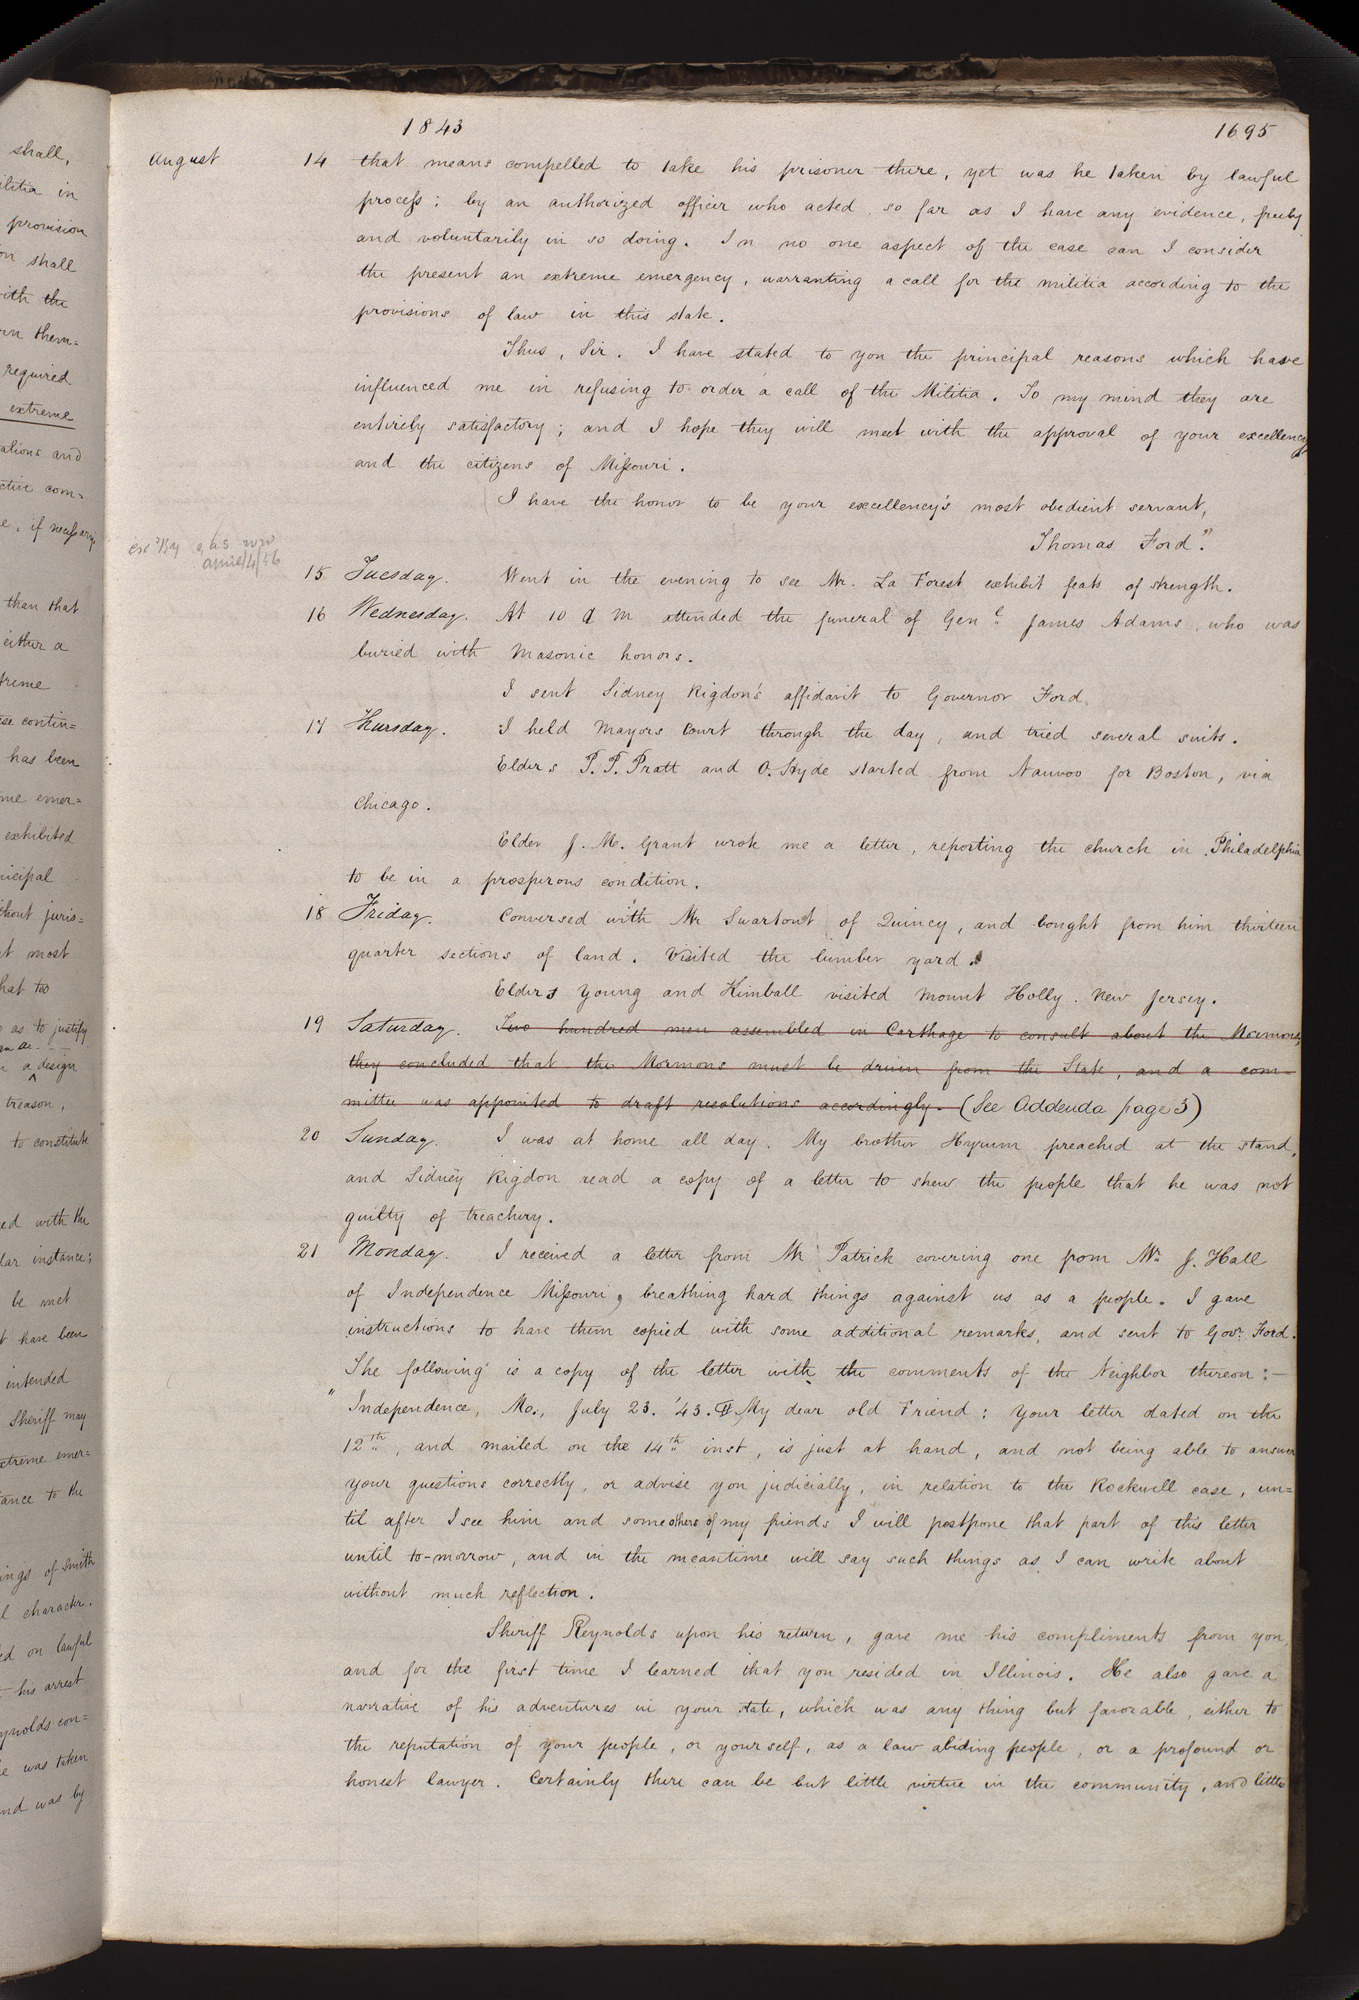 shall,
litia in
provision
on shall
ith the
rn them=
required
extreme
ations and
ctive com=
e, if necessary,
than that
either a
treme
se contin=
has been
me emer=
exhibited
nicipal
thout juris=
t most
hat too
as to justify
n a design
treason,
to constitute
ed with the
lar instance;
be met
t have been
intended
Sheriff may
xtreme emer=
tance to the
ings of Smith
l character.
ed on lawful
his arrest
ynolds con=
e was taken
nd was by
1843
1695
August 14 that means compelled to take his prisoner there, yet was he taken by lawful
process; by an authorized officer who acted, so far as I have any evidence, freely
and voluntarily in so doing. In no one aspect of the case can I consider
the present an extreme emergency, warranting a call for the militia according to the
provisions of law in this state.
Thus, Sir, I have stated to you the principal reasons which have
influenced me in refusing to order a call of the Militia. To my mind they are
entirely satisfactory; and I hope they will meet with the approval of your excellency
and the citizens of Missouri.
I have the honor to be your excellency's most obedient servant,
Thomas Ford."
15 Tuesday. Went in the evening to see Mr. La Forest exhibit feats of strength.
16 Wednesday. At 10 A M attended the funeral of Genl. James Adams, who was
buried with Masonic honors.
I sent Sidney Rigdon's affidavit to Governor Ford.
17 Thursday. I held Mayors Court through the day, and tried several suits.
Elders P. P. Pratt and O. Hyde started from Nauvoo for Boston, via
Chicago.
Elder J. M. Grant wrote me a letter, reporting the church in Philadelphia
to be in a prosperous condition.
18 Friday. Conversed with Mr Swartout of Quincy, and bought from him thirteen
quarter sections of land. Visited the lumber yard.
Elders Young and Kimball visited Mount Holly. New Jersey.
19 Saturday. Two hundred men assembled in Carthage to consult about the Mormons,
they concluded that the Mormons must be driven from the State, and a com=
mittee was appointed to draft resolutions accordingly. (See Addenda page 3)
20 Sunday. I was at home all day. My brother Hyrum preached at the stand,
and Sidney Rigdon read a copy of a letter to shew the people that he was not
guilty of treachery.
21 Monday. I received a letter from Mr Patrick covering one from Mr. J. Hall
of Independence Missouri, breathing hard things against us as a people. I gave
instructions to have them copied with some additional remarks, and sent to Govr. Ford.
The following is a copy of the letter with the comments of the Neighbor thereon:—
"Independence, Mo., July 23. '43. My dear old Friend: Your letter dated on the
12th, and mailed on the 14th inst, is just at hand, and not being able to answer
your questions correctly, or advise you judicially, in relation to the Rockwell case, un=
til after I see him and some others of my friends I will postpone that part of this letter
until to-morrow, and in the meantime will say such things as I can write about
without much reflection.
Sheriff Reynolds upon his return, gave me his compliments from you,
and for the first time I learned that you resided in Illinois. He also gave a
narrative of his adventures in your state, which was any thing but favorable, either to
the reputation of your people, or yourself, as a law abiding people, or a profound or
honest lawyer. Certainly there can be but little virtue in the community, and little